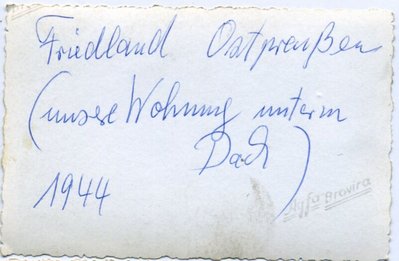 Friedland Ostpreußen
(unsere Wohnung unterm
Dach)
1944
Agfa Brovira